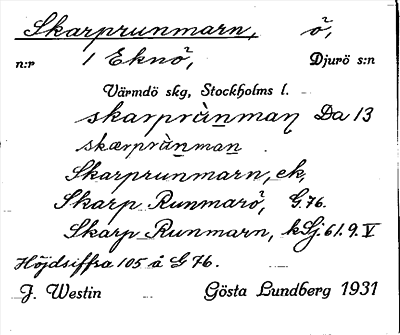 Skarprunmarn, ö,
n:r 1 Eknö, Djurö s:n
Värmdö skg, Stockholms l.
skarprànmaṇ Da 13
skærprànman.
Skarprunmarn, ek.
Skarp Runmarö, G. 76.
Skarp Runmarn, kSj 61. 9. V
Höjdsiffra 105 å G 76.
J. Westin Gösta Lundberg 1931